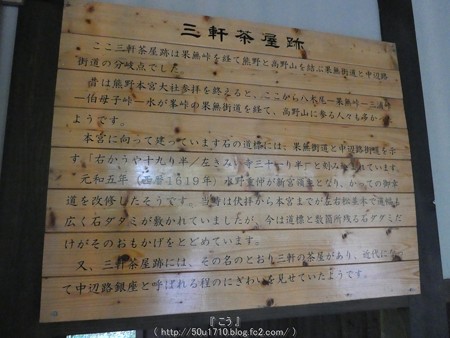 三軒茶屋跡
ここ三軒茶屋跡は果無峠を経て熊野と高野山を結ぶ果無街道と中辺路
街道の分岐点でした。
昔は熊野本宮大社参拝を終えると、ここから八木尾―果無峠―三浦峠
―伯母子峠―水が峯峠の果無街道を経て、高野山に参る人々も多かった
ようです。
本宮に向って建っています石の道標には、果無街道と中辺路街道を示
す「右かうや十九り半/左きみい寺三十一り半」と刻みこまれています。
元和五年(西暦1619年)水野重仲が新宮領主となり、かつての御幸
道を改修したそうです。当時は伏拝から本宮までが左右松並木で道幅も
広く石ダタミが敷かれていましたが、今は道標と数箇所残る石ダタミだ
けがそのおもかげをとどめています。
又、三軒茶屋跡には、その名のとおり三軒の茶屋があり、近代になっ
て中辺路銀座と呼ばれる程のにぎわいを見せていたようです。
『 こう 』
( http://50u1710.blog.fc2.com/ )